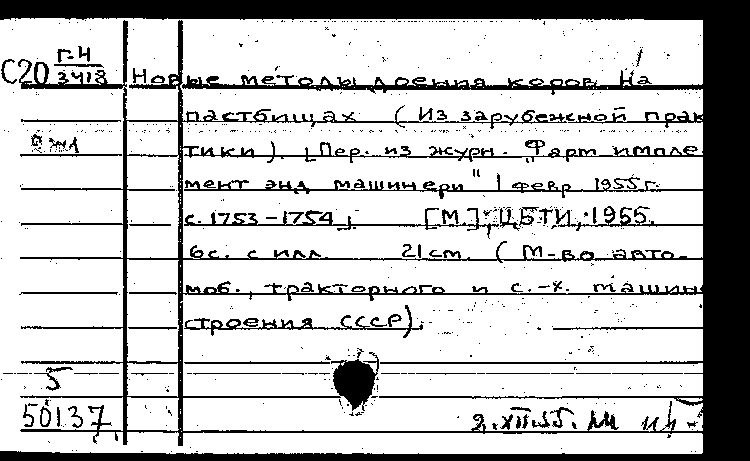 С20 Г-4/3418 Новые методы доения коров на
пастбищах (Из зарубежной прак
тики). [Пер. из журн. "Фарм импле-
мент энд машинери" 1 февр 1955 г.
с. 1753-1754] [М.], ЦБТИ, 1955.
6с. с илл. 21 см. (М-во авто-
моб., тракторного и с.-х. машино
строения СССР).
5
50137
2.XII.55.